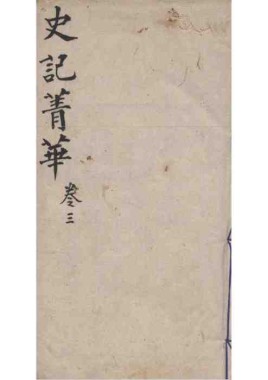 史記菁華
卷三